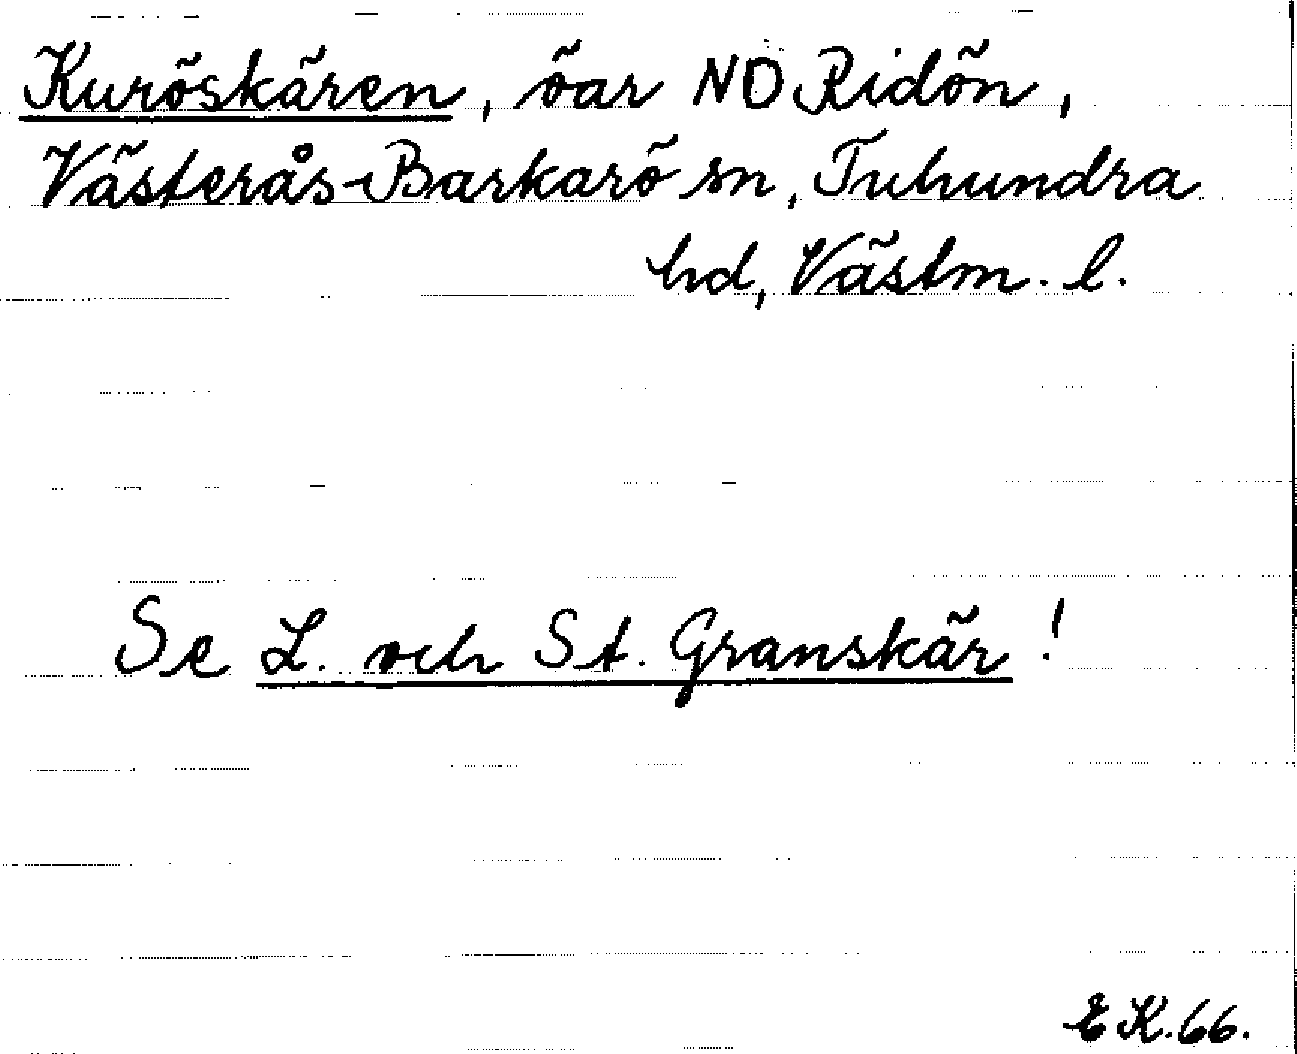 Kuröskären, öar NÖ Ridön,
Västerås-Barkarö sn, Tuhundra
hd, Västm. l.
Se L. och St. Granskär!
EK.66.